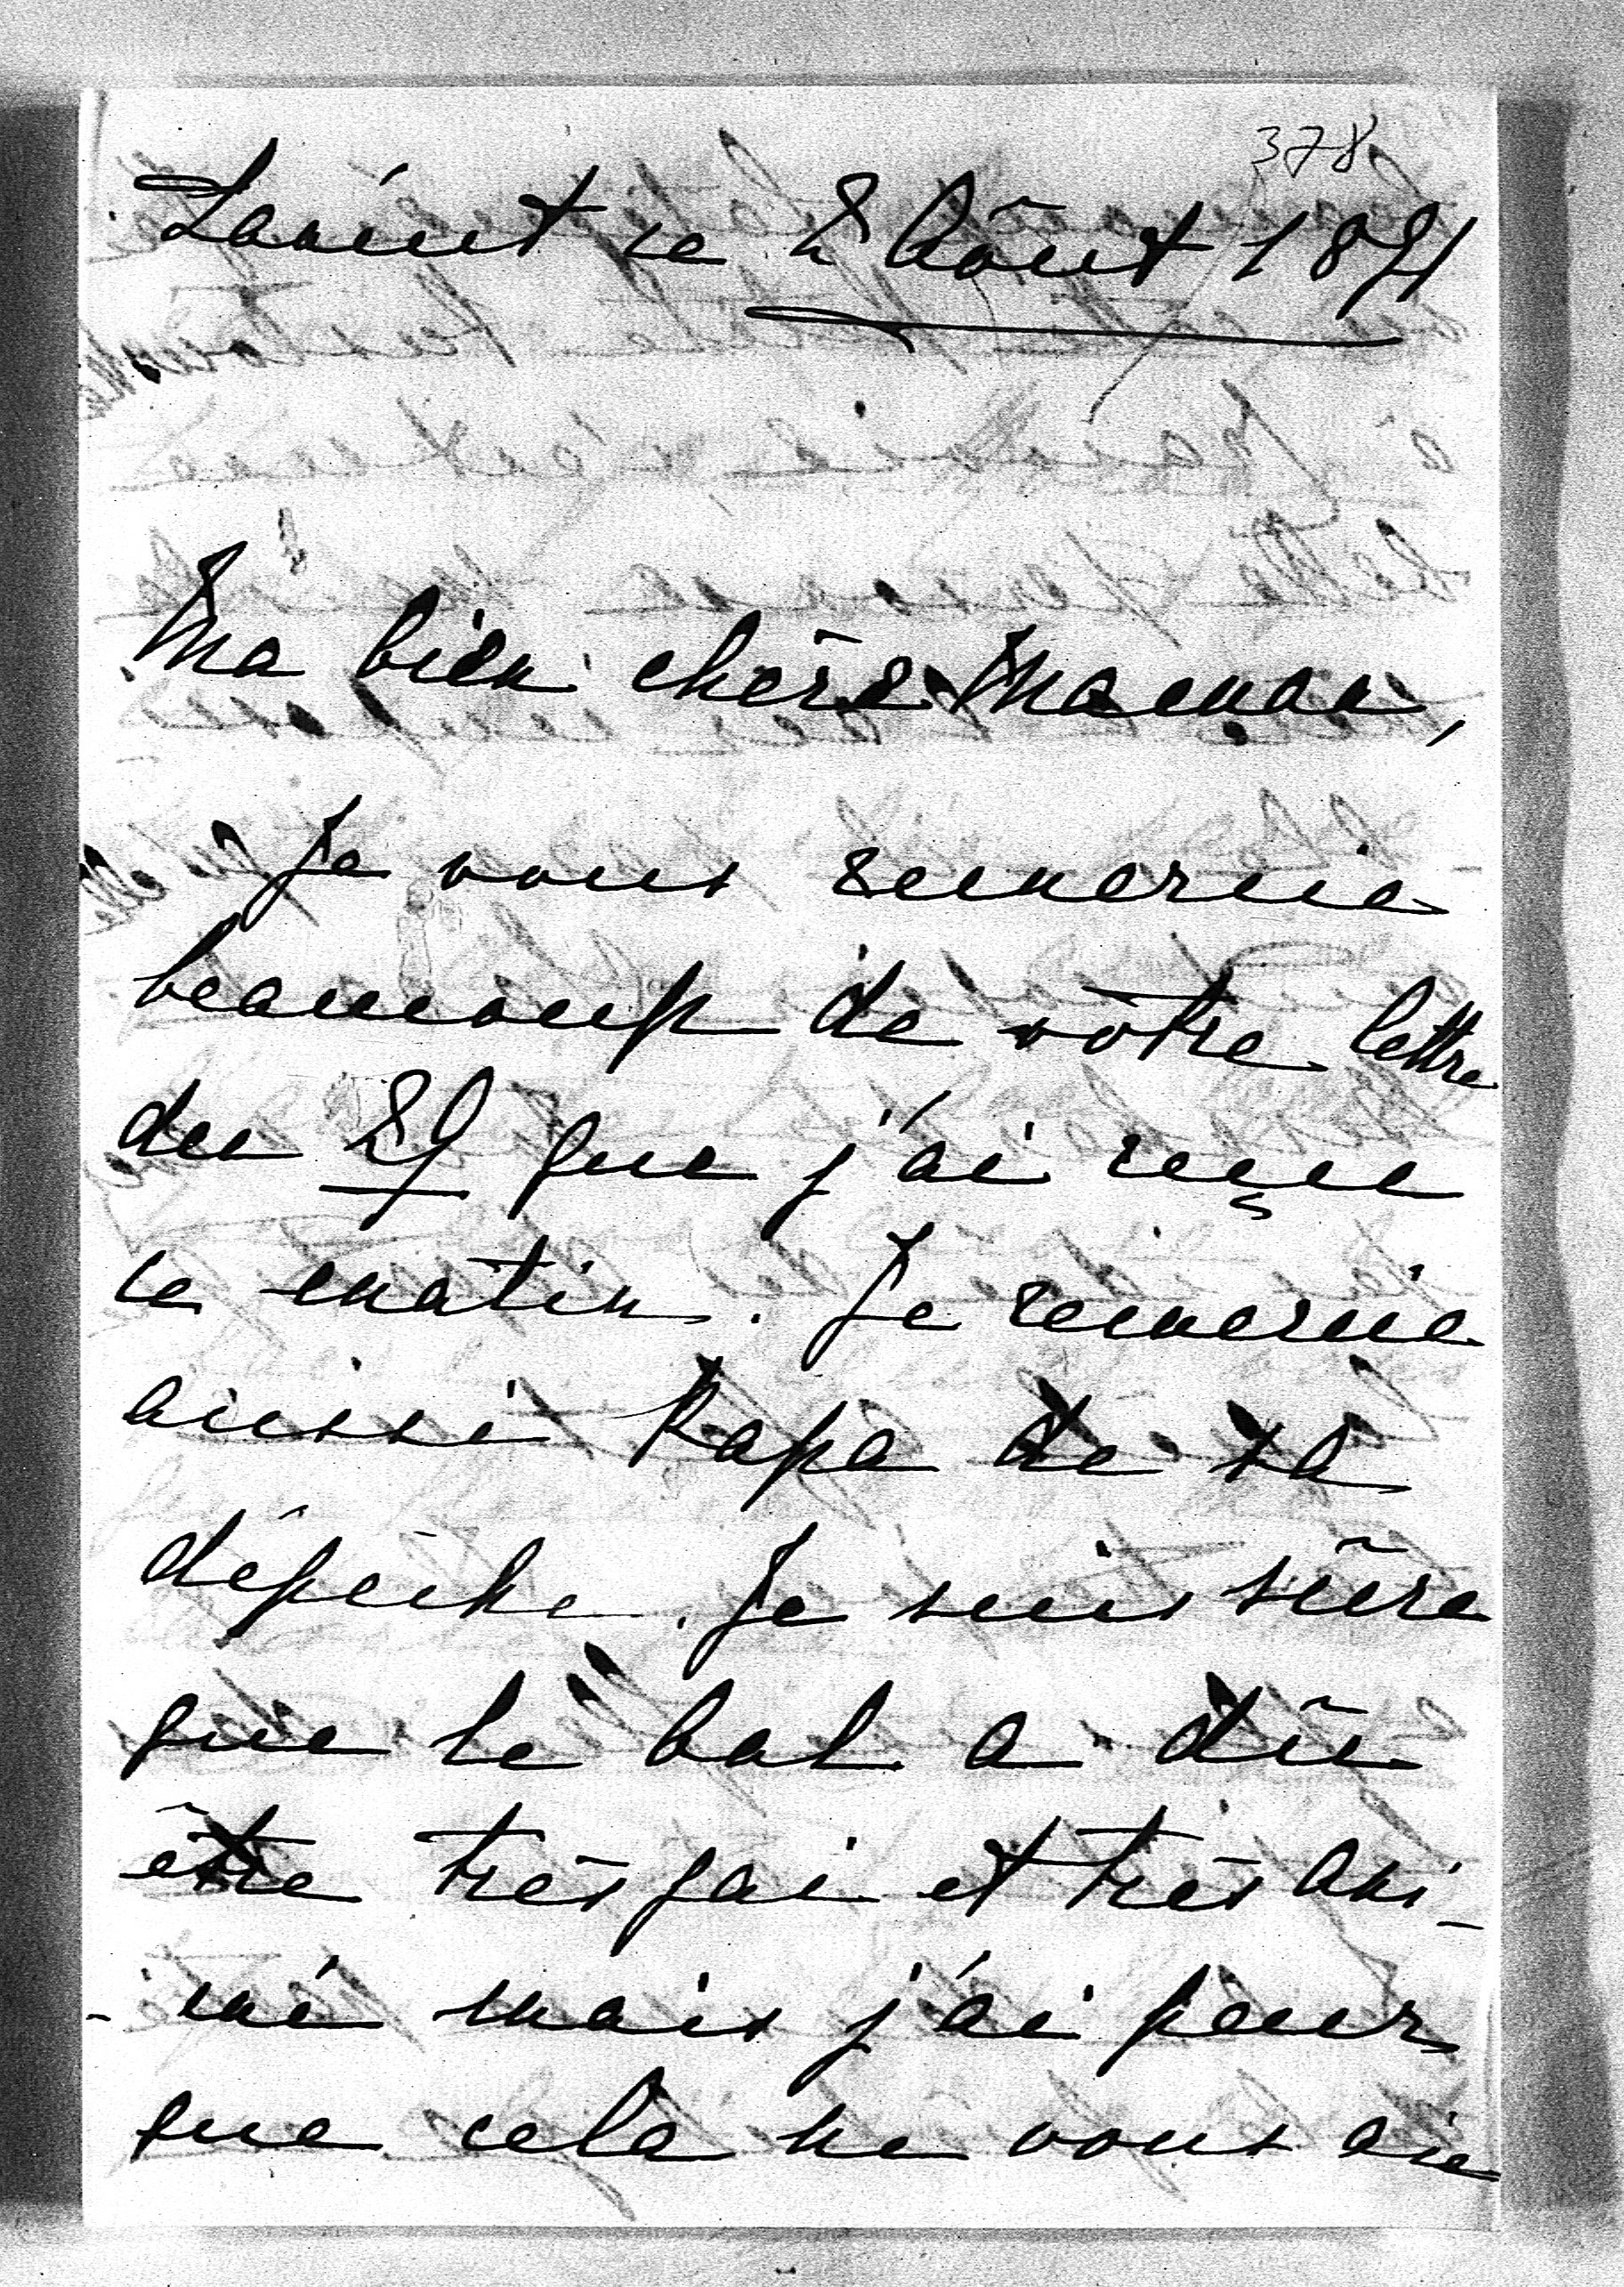 378
Lorient ce 2 Août 1891
Ma bien chère Maman,
Je vous remercie
beaucoup de vôtre lettre
du 29 que j'ai reçue
ce matin. Je remercie
aussi Papa de sa
dépêche. Je suis sûre
que le bal a dû
être très gai et très ani-
-mé mais j'ai peur
que cela ne vous aie